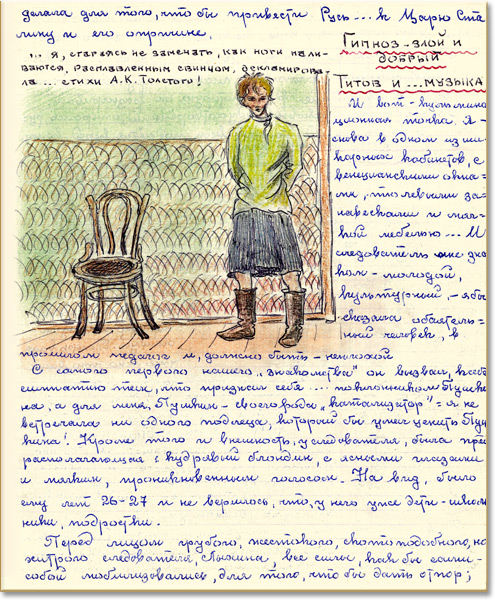 делала для того, что бы привести Русь... к Царю Ста
лину и его опричине.
... я, стараясь не замечать, как ноги нали-
ваются, расплавленным свинцом, декламирова-
ла ... стихи А.К.Толстого!
Гипноз - злой и
добрый
Титов и ... музыка
И вот - кульмина
ционная точка. Я -
снова в одном из ши-
карных кабинетов, с
венецианскими окна-
ми, шторами за-
навесками и мяг-
кой мебелью... И
следователь мне зна
ком - молодой,
культурный, - я бы
сказала обаятель-
ный человек, в
прошлом педагог и, должно быть - неплохой
С самого первого нашего "знакомства" он вызвал, к себе
симпатию тем, что признал себя ... поклонником Пушки
на, а для меня, Пушкин - своего рода "катализатор" - я не
встречала ни одного подлеца, который бы умел ценить Пуш
кина! Кроме того и внешность, у следователя, была при
располагающая: кудрявый блондин, с ясными глазами
и мягким, проникновенным голосом. На вид, было
ему лет 26-27 и не верилось, что, у него уже дети - школь
ники, подростки.
Перед лицом грубого, жестокого, скотоподобного, но
хитрого следователя, все силы, как бы сами-
собой мобилизовались, для того, что бы дать отпор;